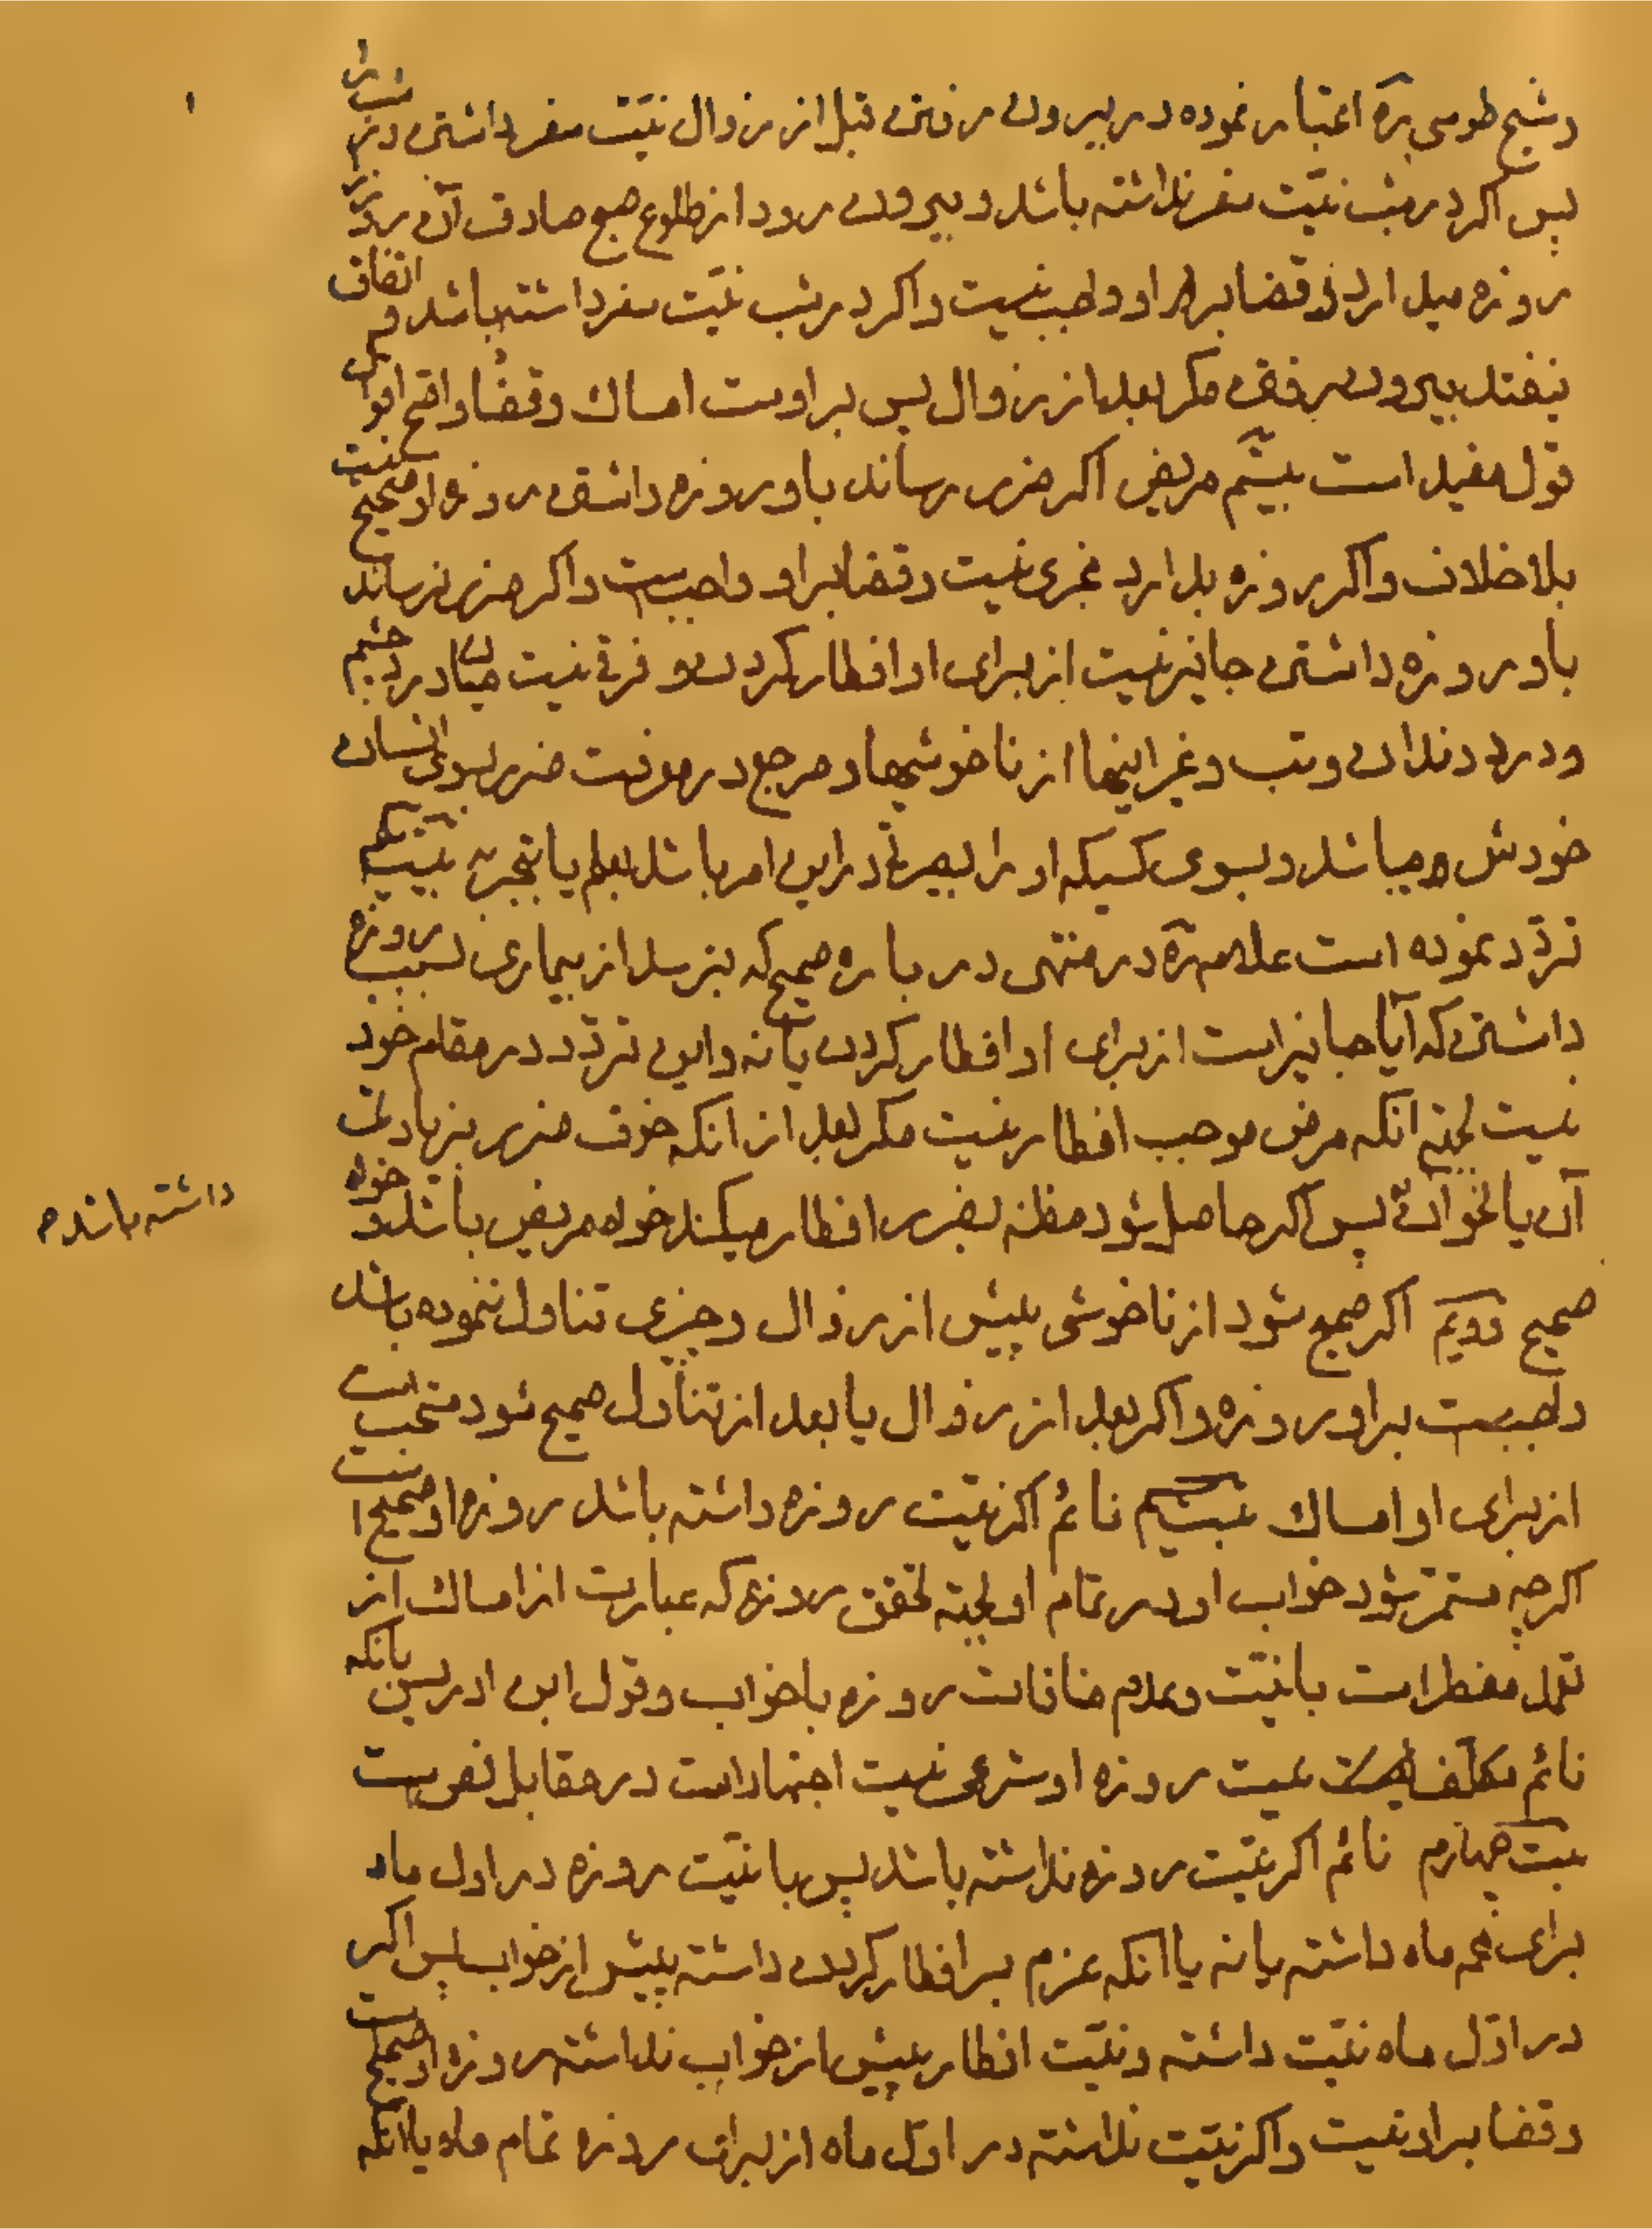 و شیخ طوسی ره اعتبار نموده در بیرون رفتن قبل از زوال نیّت سفر داشتن در شب را
پس اکر در شب نیّت سفر نداشته باشد و بیرون رود از طلوع صبح صادق آن روز را
روزه میدارد و قضا بر او واجب نیست و اکر در شب نیّت سفر داشته باشد و اتفاق
نیفتد بیرون رفتن مکر بعد از زوال پس بر اوست امساك و قضا و اصح اقوال
قول مفید است بیستم مریض اکر ضرر رساند باو روزه داشتن روزه او صحیح نیست
بلا خلاف و اکر روزه بدارد مجزی نیست و قضا بر او واجبست و اکر ضرر نرساند
باو روزه داشتن جایز نیست از برای او افطار کردن و فرقی نیست میان درد چشم
و درد دندان و تب و غیر اینها از ناخوشیها و مرجع در معرفت ضرر بسوی انسان
خودش میباشد و بسوی کسیکه او را بصیرتی در این امر باشد بعلم یا بتجربه بیست یکم
تردّد نموده است علامه ره در منتهی در باره صحیح که بترسد از بیماری بسبب روزه
داشتن که آیا جایز است از برای او افطار کردن یا نه و این تردّد در مقام خود
نیست بجهة انکه مرض موجب افطار نیست مکر بعد از انکه خوف ضرر بزیادتی
آن یا نحو آن پس اکر حاصل شود مظنه بضرر افطار میکند خواه مریض باشد و خواه
داشته باشد م
صحیح دویم اکر صحیح شود از ناخوشی پیش از زوال و چیزی تناول ننموده باشد
واجبست بر او روزه و اکر بعد از زوال یا بعد از تناول صحیح شود مستحب است
از برای او امساك بیست سیم نائم اکر نیّت روزه داشته باشد روزه او صحیح است
اکر چه مستمر شود خواب او در تمام او بجهة تحقق روزه که عبارت از امساك از
تعمد مفطر است با نیّت و عدم منافات روزه با خواب و قول ابن ادریس بانکه
نائم مکلّف نیست روزه او شرعی نیست اجتهاد است در مقابل نص
بیست چهارم نائم اکر نیّت روزه نداشته باشد پس یا نیّت روزه در اول ماه
برای همه ماه داشته یا نه یا انکه عزم بر افطار کردن داشته پیش از خواب پس اکر
در اوّل ماه نیّت داشته و نیّت افطار پیش از خواب نداشته روزه او صحیح است
و قضا بر او نیست و اکر نیّت نداشته در اوّل ماه از برای روزه تمام ماه یا انکه